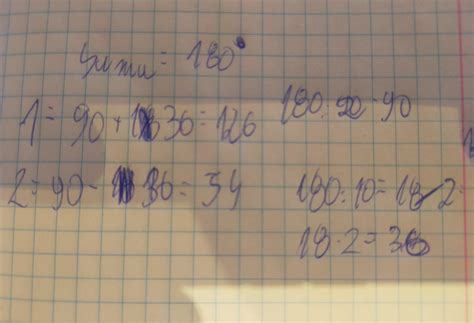 = 180°
1 = 90 + 36 = 126
180 : 90 - 90
2 = 90 - 36 = 54
180 : 10 = 18 · 2
18 · 2 = 36